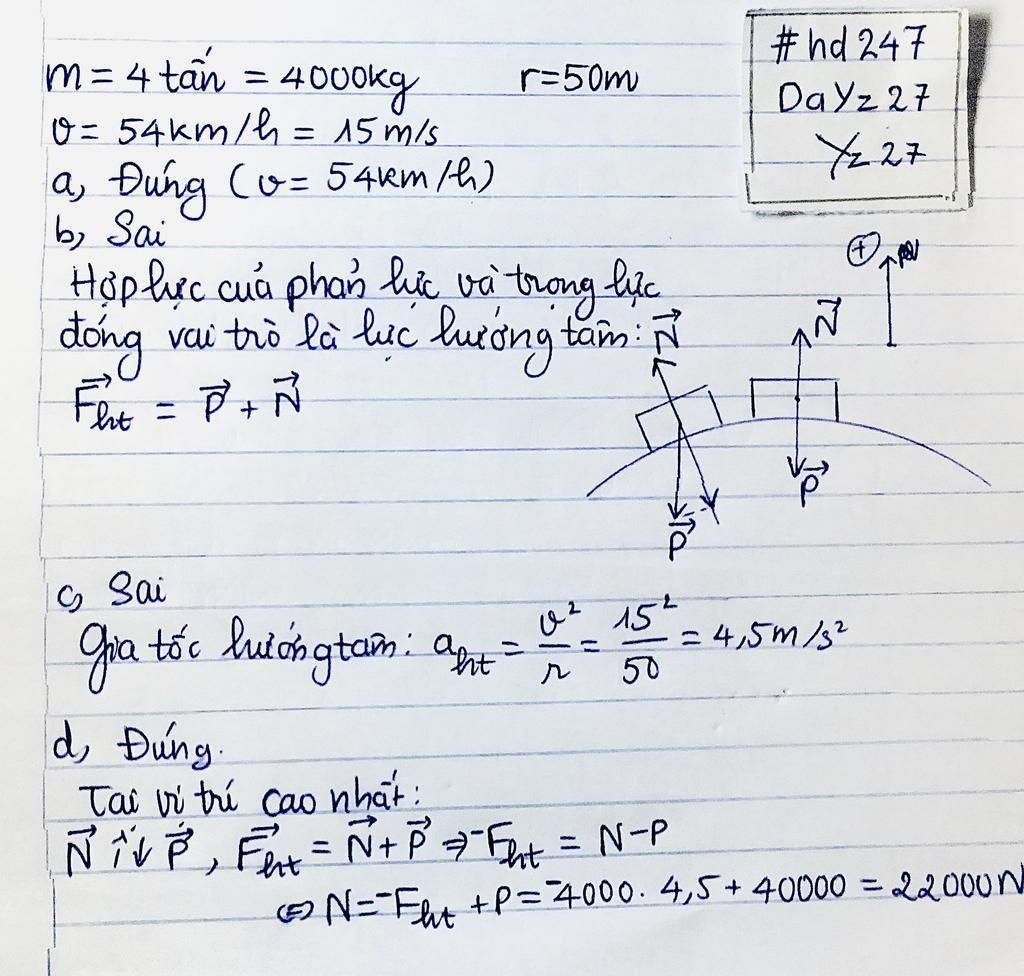 m = 4 tấn = 4000kg r=50m
v = 54km/h = 15 m/s
a, Đúng (v = 54km/h)
b, Sai
Hợp lực của phản lực và trọng lực
đóng vai trò là lực hướng tâm:
F⃗ht = P⃗ + N⃗
N⃗
P⃗
+
N⃗
P⃗
c, Sai
Gia tốc hướng tâm: aht = v²/r = 15²/50 = 4,5m/s²
d, Đúng.
Tại vị trí cao nhất:
N⃗ ↑↓ P⃗, F⃗ht = N⃗ + P⃗ ⇒ -Fht = N-P
⇔ N = -Fht + P = -4000. 4,5 + 40000 = 22000N
#hd247
DaYz27
Yz27